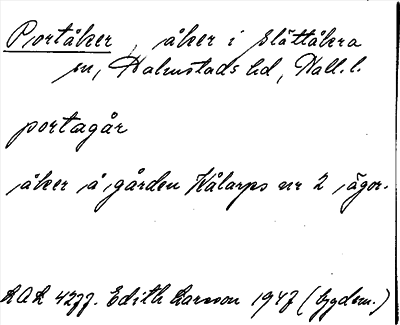 Portåker, åker i Slättåkra
sn, Halmstads hd, Hall. l.
portagår
åker å gården Kålarps nr 2 ägor.
Edith Larsson 1947 (bygdem.)